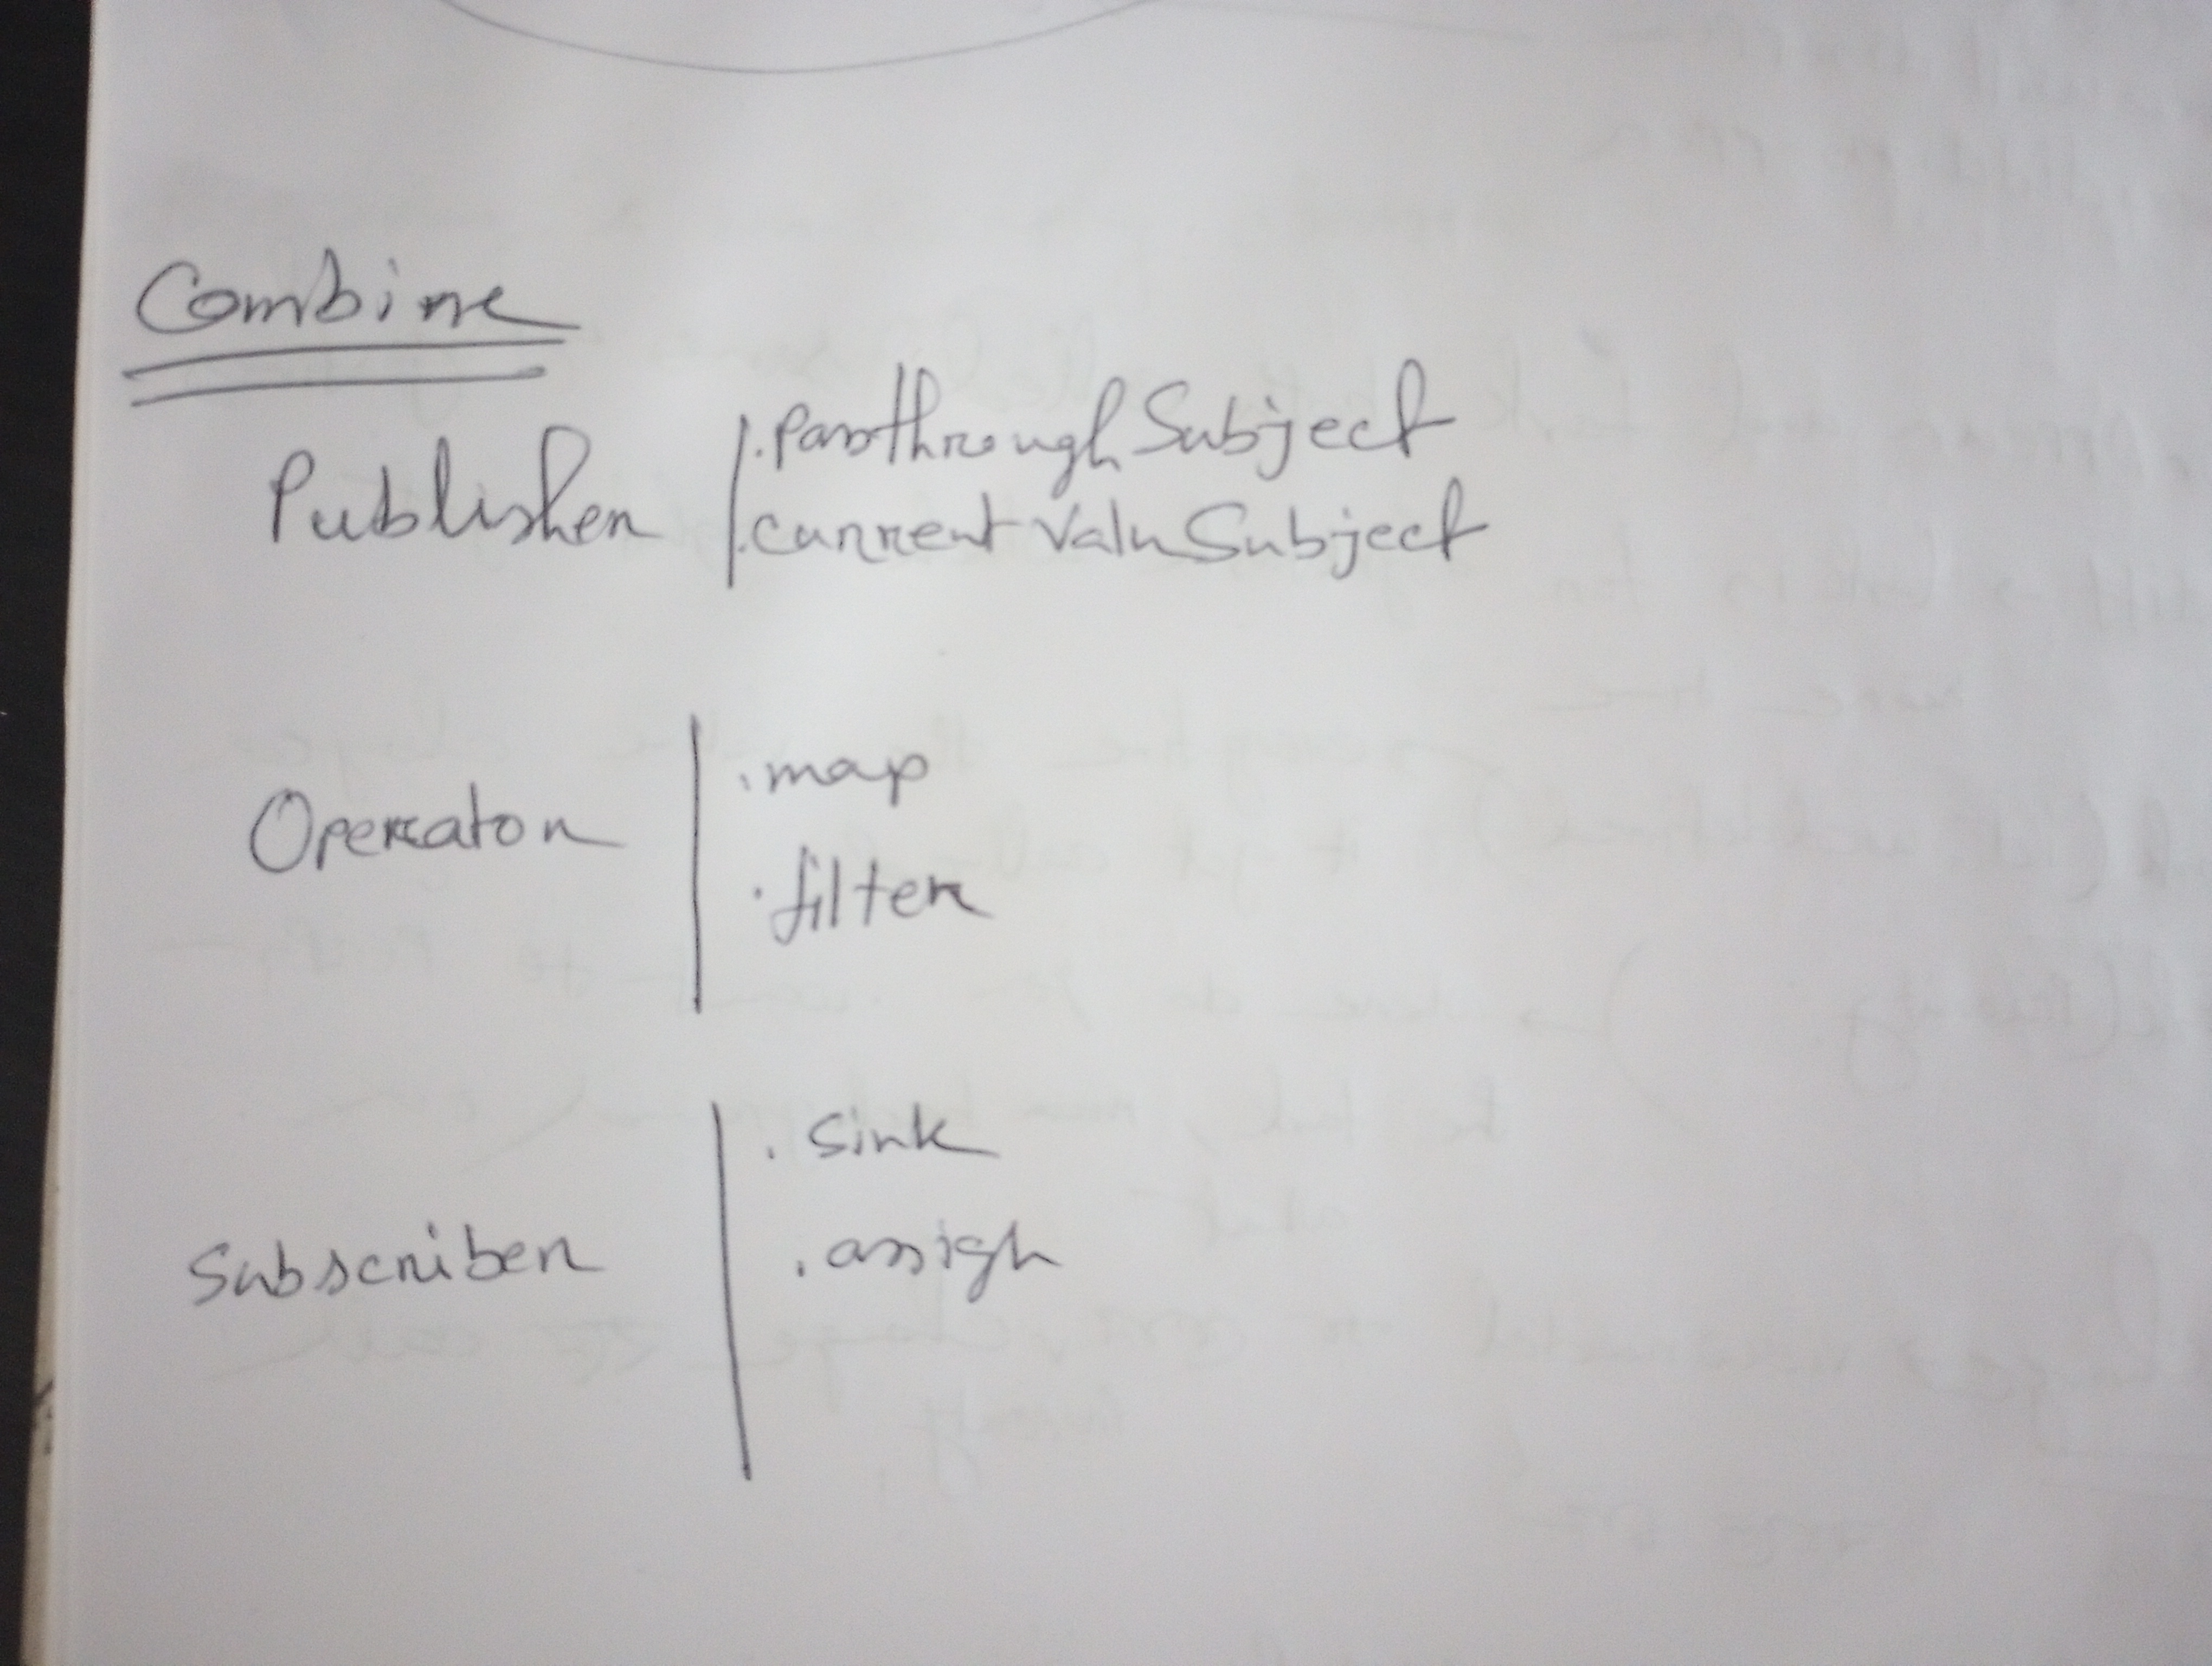 Combine
Publisher | .PassthroughSubject
.currentValuSubject
Operator | .map
.filter
Subscriber | .sink
.assign